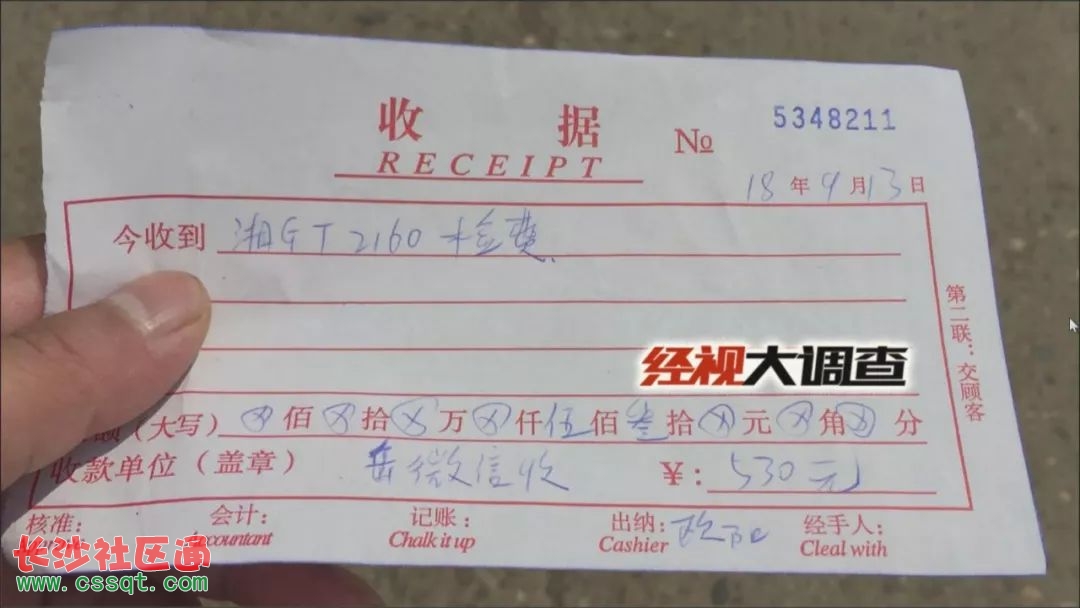 收 据 № 5348211
RECEIPT
18 年 9 月 13 日
今收到 湘GT2160 检费
第二联：交顾客
经视大调查
(大写) ⊗ 佰 ⊗ 拾 ⊗ 万 ⊗ 仟 伍 佰 叁 拾 ⊗ 元 ⊗ 角 ⊗ 分
收款单位（盖章） 微信收 ¥：530元
核准： 会计： 记账： 出纳： 欧阳 经手人：
Accountant Chalk it up Cashier Cleal with
长沙社区通
www.cssqt.com